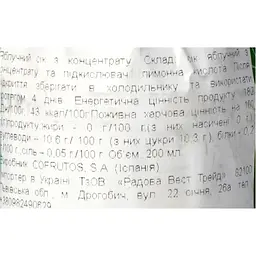 яблучний сік з концентрату Склад: сік яблучний з
концентрату та підкислювач лимонна кислота Після
відкриття зберігати в холодильнику та використати
протягом 4 днів Енергетична цінність продукту 180
43 ккал/100г.Поживна харчова цінність на 100
продукту:жири - 0 г/100 г,(з них насичені 0
вуглеводи – 10,6 г/100 г (з них цукри 10,3 г), білки - 0,2
100 г,сіль – 0,05 г/100 г Об'єм, 200 мл.
Виробник COFRUTOS, S.A. (Іспанія)
Імпортер в Україні ТзОВ "Радова Вест Трейд" 82100
Львівська обл., м. Дрогобич, вул 22 січня, 26а тел
380982490829